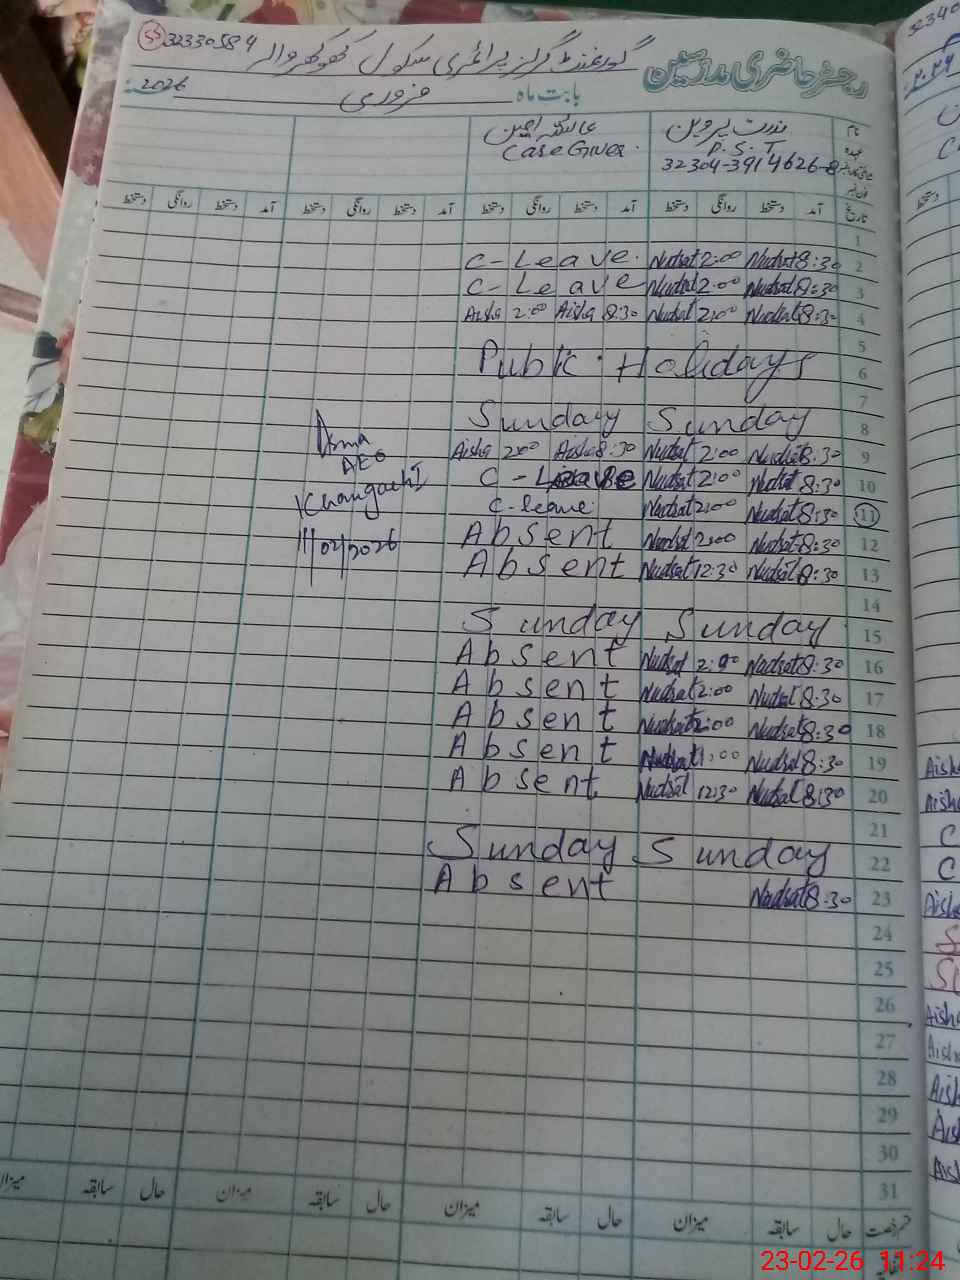 رجسٹر حاضری مدرسین
گورنمنٹ گرلز پرائمری سکول کھوکھر والہ 32330584 55
بابت ماہ فروری 2026
نام ندرت پروین عائشہ امین
عہدہ P.S.T CareGiver.
32304-3914626-8
تاریخ آمد دستخط روانگی دستخط آمد دستخط روانگی دستخط آمد دستخط روانگی دستخط آمد دستخط روانگی دستخط
1
C-Leave. Nudsat 2:00 Nudsat 8:30 2
C-Leave Nudsat 2:00 Nudsat 8:30 3
Aisha 2:00 Aisha 8:30 Nudsat 2:00 Nudsat 8:30 4
5
Public Holidays 6
7
Sunday Sunday 8
Asma
AEO
Khangarh I
11/02/2026
Aisha 2:00 Aisha 8:30 Nudsat 2:00 Nudsat 8:30 9
C-Leave Nudsat 2:00 Nudsat 8:30 10
C-leave Nudsat 2:00 Nudsat 8:30 11
Absent Nudsat 2:00 Nudsat 8:30 12
Absent Nudsat 12:30 Nudsat 8:30 13
14
Sunday Sunday 15
Absent Nudsat 2:00 Nudsat 8:30 16
Absent Nudsat 2:00 Nudsat 8:30 17
Absent Nudsat 2:00 Nudsat 8:30 18
Absent Nudsat 1:00 Nudsat 8:30 19
Absent Nudsat 12:30 Nudsat 8:30 20
21
Sunday Sunday 22
Absent Nudsat 8:30 23
24
25
26
27
28
29
30
31
حال سابقہ میزان حال سابقہ میزان حال سابقہ میزان حال سابقہ میزان
23-02-26 11:24